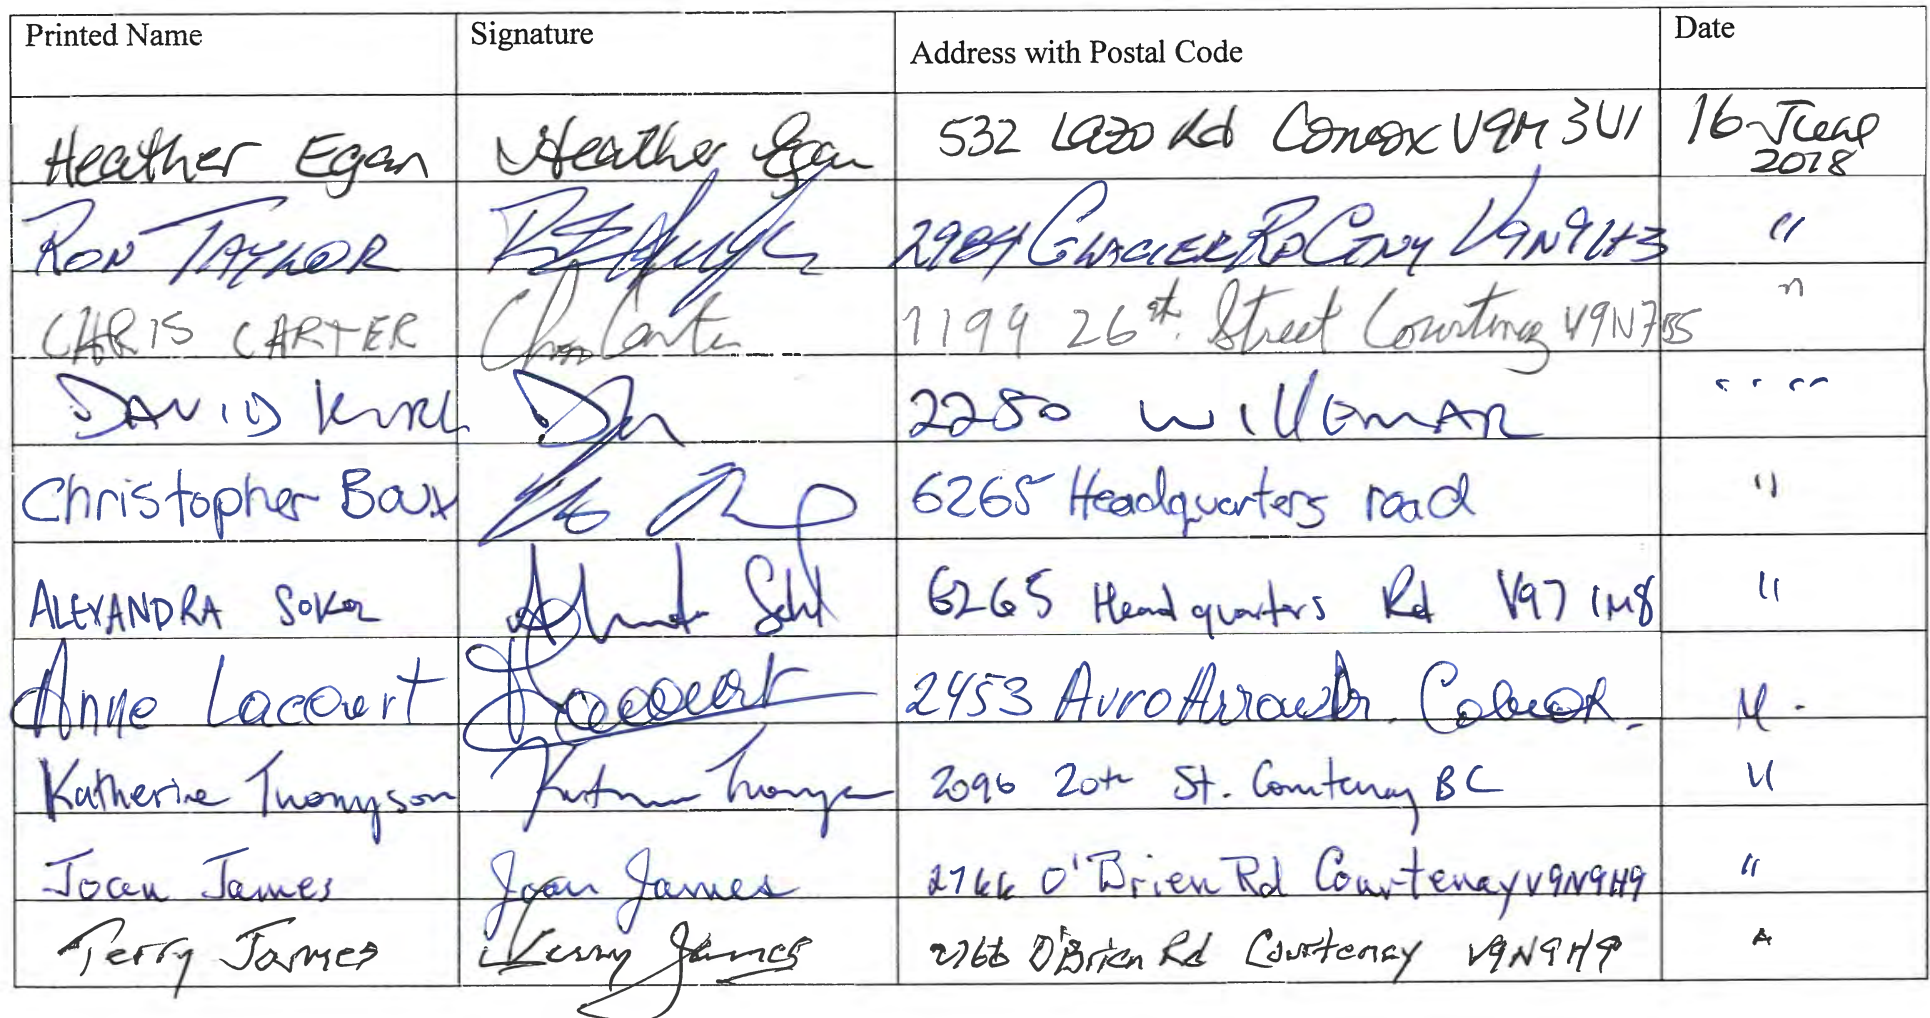 Printed Name Signature Address with Postal Code Date
Heather Egan Heather Egan 532 Lazo Rd Comox V9M 3U1 16 June 2018
RON TAYLOR 2984 GLACIER RD CTNY V9N9H3 "
CHRIS CARTER Chris Carter 1199 26th. Street Courtenay V9N7B5 "
DAVID KIRK 2250 WILLEMAR " "
Christopher Baux 6265 Headquarters road "
ALEXANDRA SOKOL 6265 Headquarters Rd V9J 1M8 "
Anne Lacourt Lacourt 2453 Avro Arrow Dr. Comox. "
Katherine Thompson 2096 20th St. Courtenay BC "
Joan James Joan James 2766 O'Brien Rd Courtenay V9N9H9 "
Terry James Terry James 2766 O'Brien Rd Courtenay V9N9H9 "